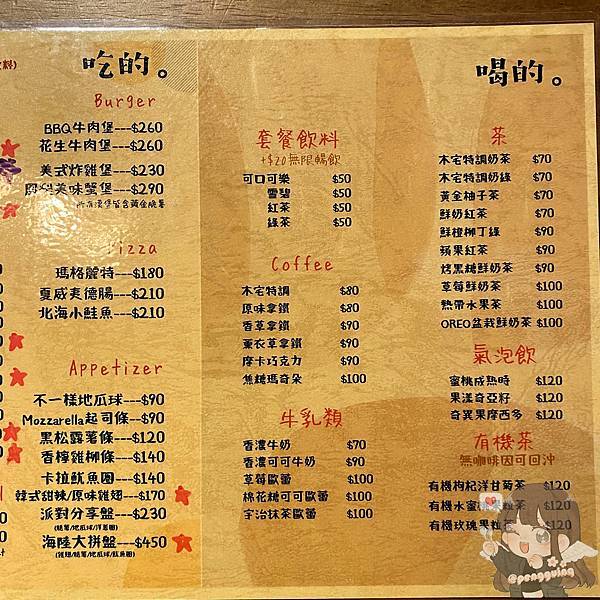 吃的。
Burger
BBQ牛肉堡---$260
花生牛肉堡---$260
美式炸雞堡---$230
美味蟹堡---$290
izza
瑪格麗特---$180
夏威夷德腸---$210
北海小鮭魚---$210
Appetizer
不一樣地瓜球---$90
Mozzarella起司條--$90
黑松露薯條---$120
香檸雞柳條---$140
卡拉魷魚圈---$140
韓式甜辣/原味雞翅---$170
派對分享盤---$230
(薯薯/地瓜球/洋蔥圈)
海陸大拼盤---$450
(雞翅/薯薯/地瓜球/魷魚圈)
喝的。
套餐飲料
+$20無限暢飲
可口可樂 $50
雪碧 $50
紅茶 $50
綠茶 $50
Coffee
木宅特調 $80
原味拿鐵 $80
香草拿鐵 $90
薰衣草拿鐵 $90
摩卡巧克力 $90
焦糖瑪奇朵 $100
牛乳類
香濃牛奶 $70
香濃可可牛奶 $90
草莓歐蕾 $100
棉花糖可可歐蕾 $100
宇治抹茶歐蕾 $100
茶
木宅特調奶茶 $70
木宅特調奶綠 $70
黃金柚子茶 $70
鮮奶紅茶 $70
鮮橙柳丁綠 $90
蘋果紅茶 $90
烤黑糖鮮奶茶 $90
草莓鮮奶茶 $100
熱帶水果茶 $100
OREO盆栽鮮奶茶 $100
氣泡飲
蜜桃成熟時 $120
果漾奇亞籽 $120
奇異果摩西多 $120
有機茶
無咖啡因可回沖
有機枸杞洋甘菊茶 $120
有機水蜜桃果粒茶 $120
有機玫瑰果粒茶 $120
@pengguing